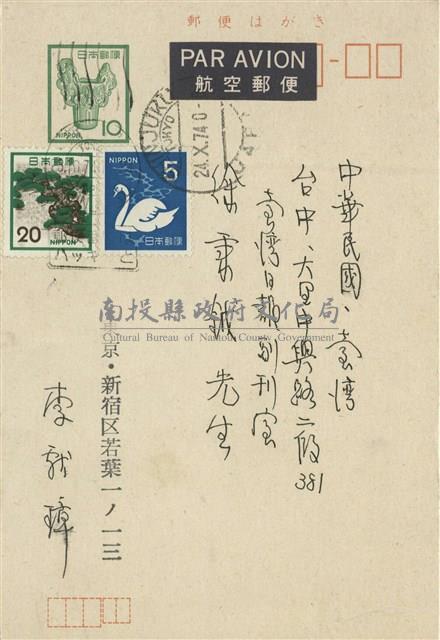 郵便はがき
日本郵便
NIPPON
10
PAR AVION
航空郵便
日本郵便
20
NIPPON
NIPPON
5
日本郵便
TOKYO
24.X.74
中華民國、台湾
台中、大里中興路二段
381
台湾日報副刊室
徐秉鉞先生
南投縣政府文化局
Cultural Bureau of Nantou County Government
東京・新宿区若葉一ノ一三
李献璋